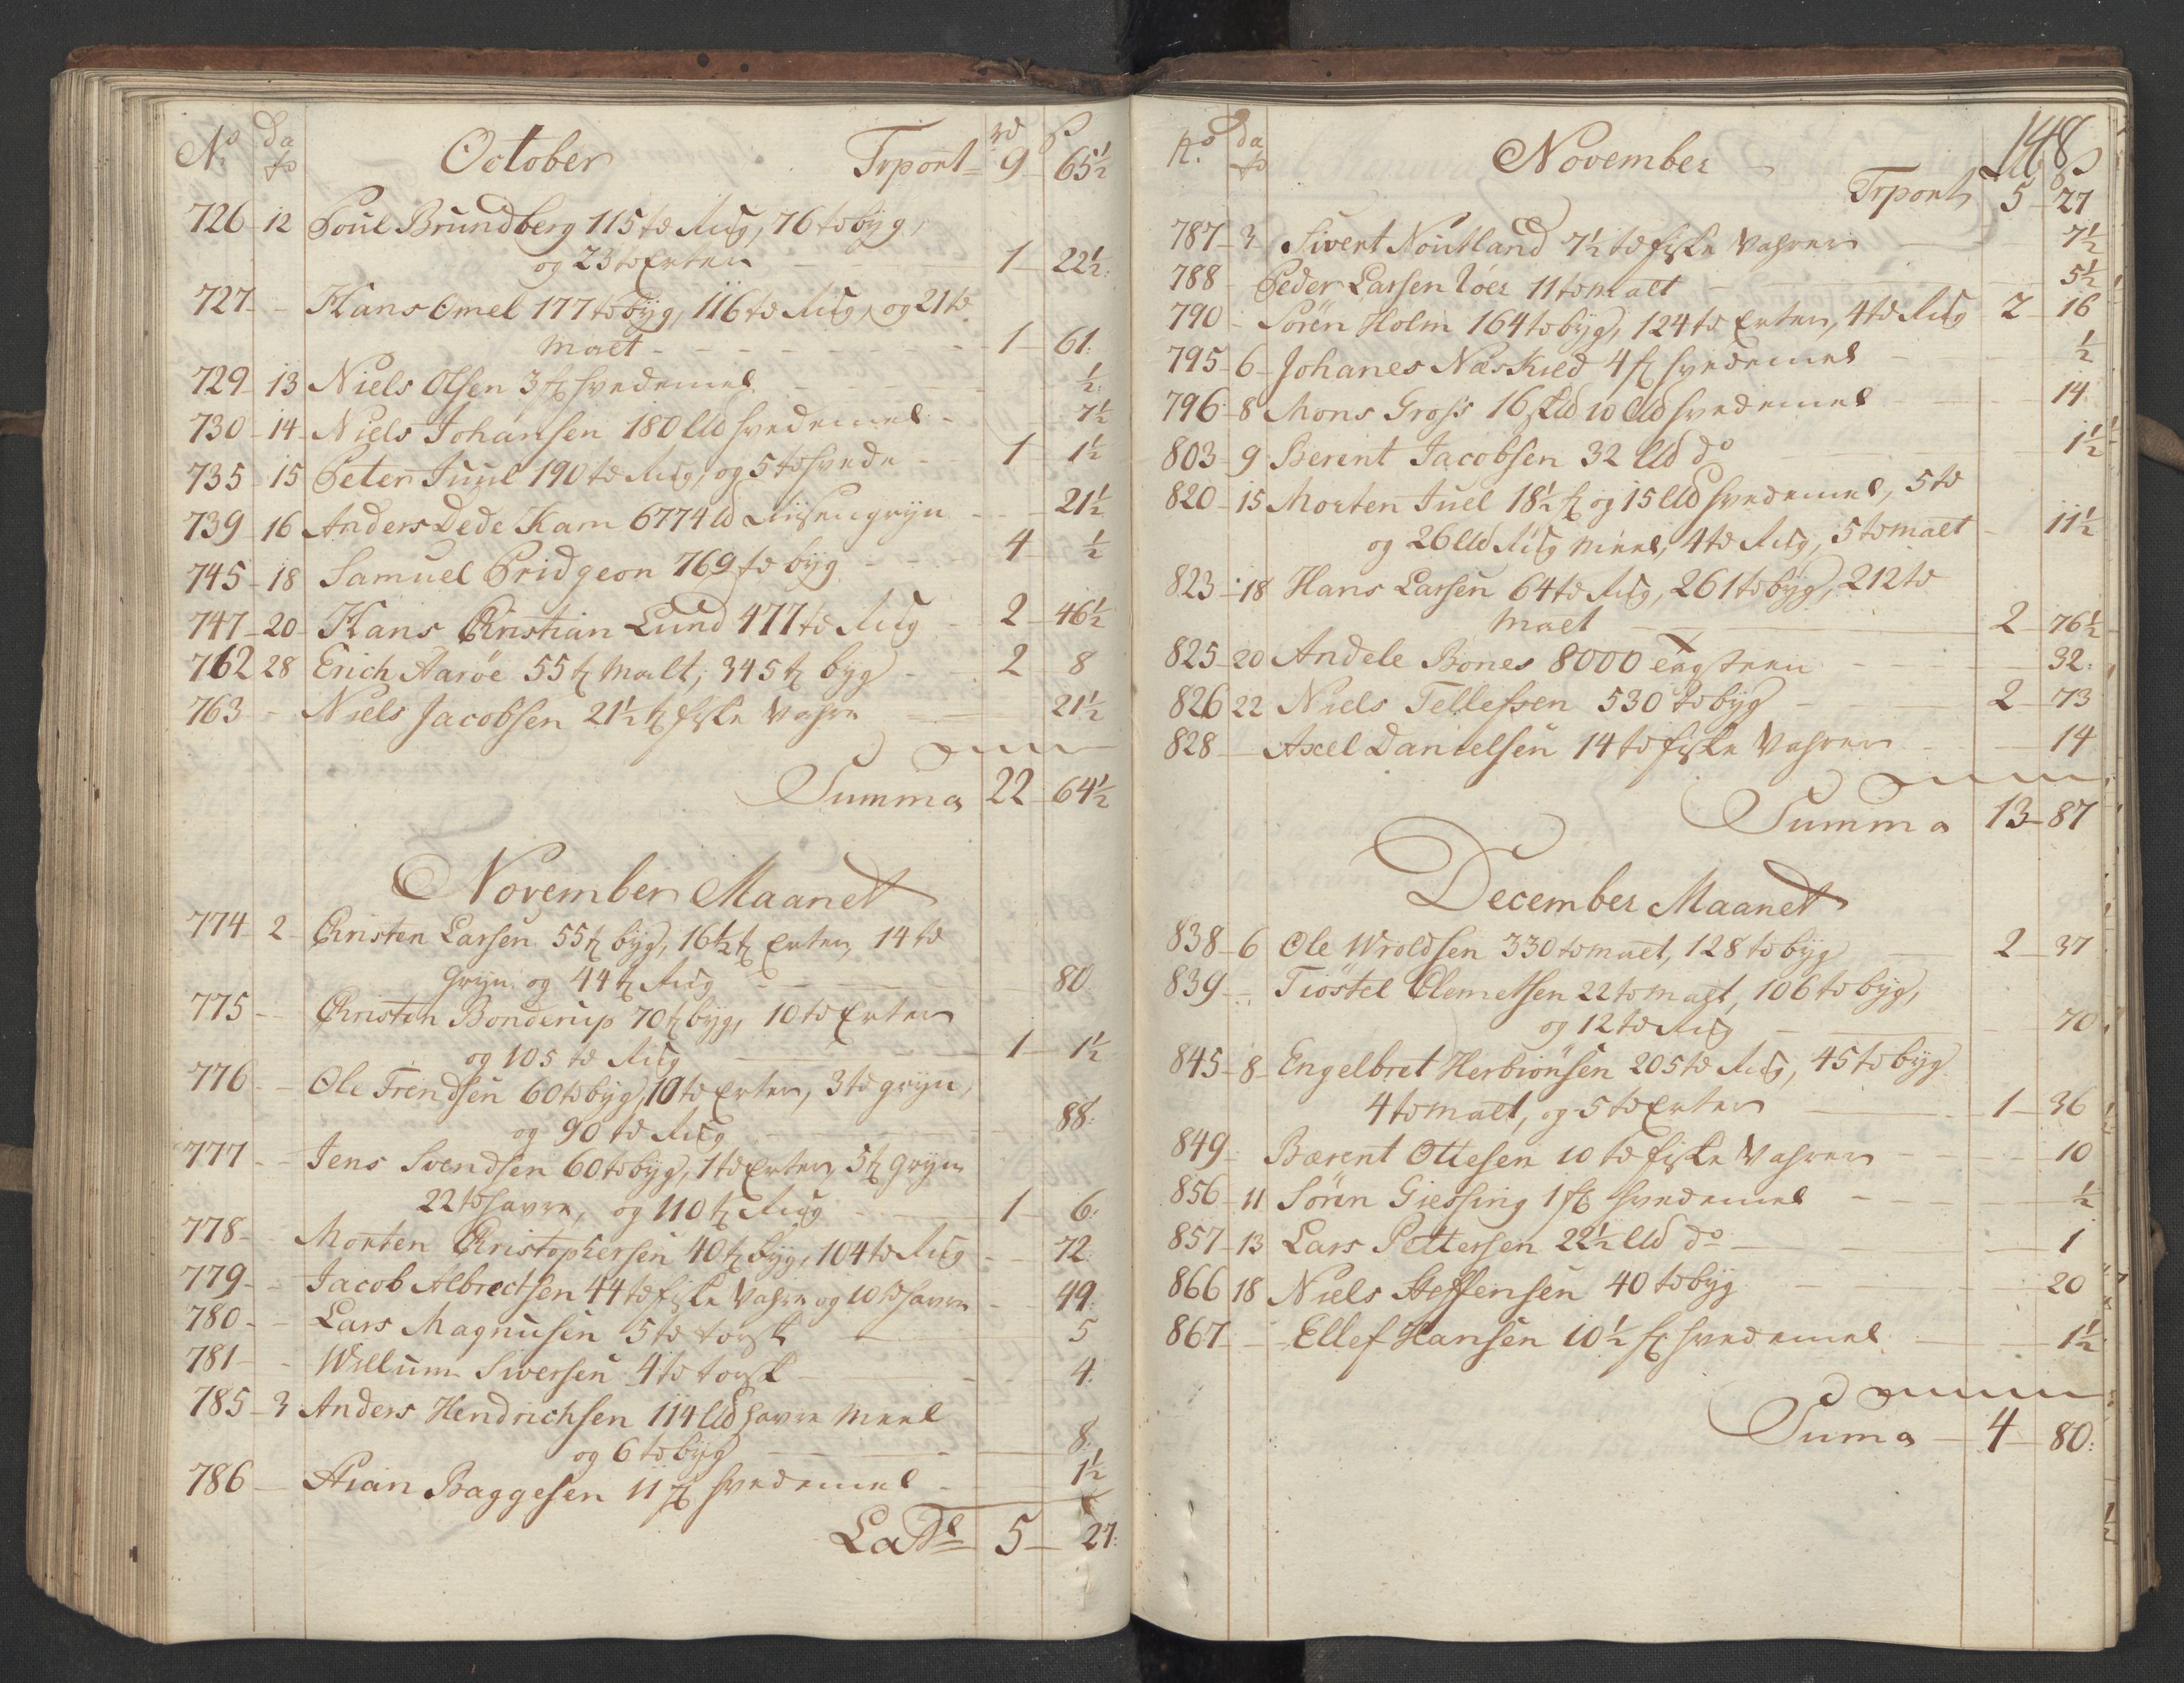 No da to October Trport rd 9 ß 65½
726 12 Poul Brundberg 115 td Rug, 76 td byg,
og 23 td Erter 1 22½
727 - Hans Emel 177 td byg, 116 td Rug, og 21 td
Malt 1 61
729 13 Niels Olsen 3 sk hvedemel ½
730 14 Niels Johansen 180 lld hvedemel 7½
735 15 Peter Juul 190 td Rug, og 5 td hvede 1 1½
739 16 Anders Dedekam 6774 ld Riisengryn 21½
745 18 Samuel Pridgeon 769 td byg 4 ½
747 20 Hans Christian Lund 477 td Rug 2 46½
762 28 Erich Aarøe 55 t Malt, 345 t byg 2 8
763 - Niels Jacobsen 21½ t fiske Vahre 21½
Summa 22 64½
November Maanet
774 2 Christen Larsen 55 t byg, 16½ t Erter, 14 td
Gryn og 44 t Rug 80
775 - Christen Bonderup 70 t byg, 10 td Erter
og 105 td Rug 1 1½
776 - Ole Trendsen 60 td byg, 10 td Erter, 3 td gryn,
og 90 td Rug 88
777 - Jens Svendsen 60 td byg, 1 td Erter, 5 t Gryn
22 td havre, og 110 t Rug 1 6
778 - Morten Christophersen 40 t byg, 104 td Rug 72
779 - Jacob Albrectsen 44 td fiske Vahre og 10 td havre 49
780 - Lars Magnusen 5 td torsk 5
781 - Willum Siversen 4 td torsk 4
785 3 Anders Hendrichsen 114 lld havre Meel
og 6 td byg 8
786 - Arian Baggesen 11 sk hvedemel 1½
Lat 5 27
148
No da to November ß
Trport 5 27
787 3 Sivert Noutland 7½ td fiske Vahrer 7½
788 - Peder Larsen 11 td malt 5½
790 - Søren Holm 164 td byg, 124 td Erter, 4 td Rug 2 16
795 6 Johanes Næskied 4 sk hvedemel ½
796 8 Mons Gross 16 skld 10 lld hvedemel 14
803 9 Berent Jacobsen 32 lld do 1½
820 15 Morten Juel 18½ sk og 15 lld hvedemel, 5 td
og 26 lld Rug Meel, 4 td Rug, 5 td malt 11½
823 18 Hans Larsen 64 td Rug, 261 td byg, 212 td
Malt 2 76½
825 20 Andele Bones 8000 tagsteen 32
826 22 Niels Tellefsen 530 td byg 2 73
828 - Axel Danielsen 14 td fiske Vahrer 14
Summa 13 87
December Maanet
838 6 Ole Wroldsen 330 td malt, 128 td byg 2 37
839 - Tiøstel Clemetsen 22 td malt, 106 td byg,
og 12 td Rug 70
845 8 Engelbret Herbiønsen 205 td Rug, 45 td byg
4 td malt, og 5 td Erter 1 36
849 - Bærent Ottesen 10 td fiske Vahrer 10
856 11 Søren Giessing 1 sk hvedemel ½
857 13 Lars Pettersen 22½ lld do 1
866 18 Niels Steffensen 40 td byg 20
867 - Ellef Hansen 10½ sk hvedemel 1½
Suma 4 80